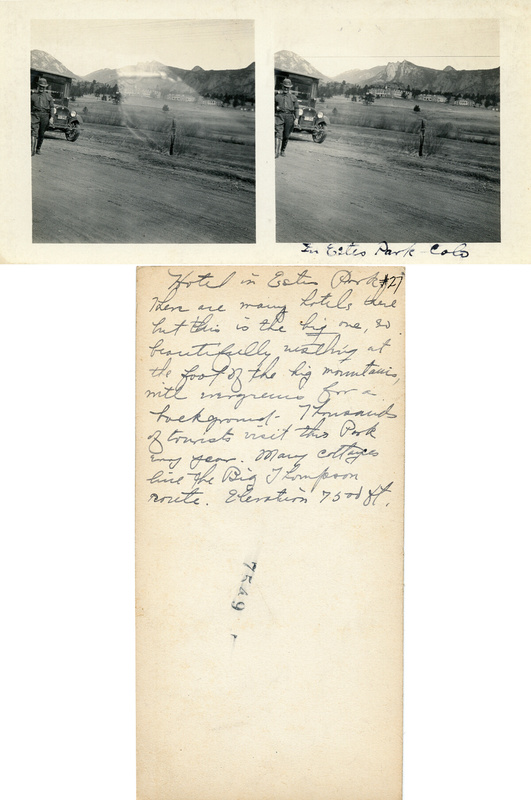 In Estes Park - Colo
Hotel in Estes Park #27
There are many hotels here
but this is the big one, so
beautifully nestling at
the foot of the big mountains,
with evergreens for a
background - Thousands
of tourists visit this Park
every year. Many cottages
line the Big Thompson
route. Elevation 7500 ft.
7529